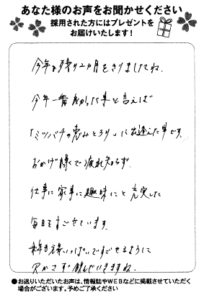 あなた様のお声をお聞かせください
採用された方にはプレゼントを
お届けいたします!
今年も残り二ヶ月をきりましてね
今年一番助った事と言えば
「ミツバチの恵みとろり」に出逢えた事です。
おかげ様で疲れ知らず
仕事に家事に趣味にと充実した
毎日をすごせています。
元気いっぱいですごせるように
欠かさず飲んでいきますね。
●お送りいただいたお声は、情報誌やWEBなどに掲載させていただく
場合がございます。予めご了承ください